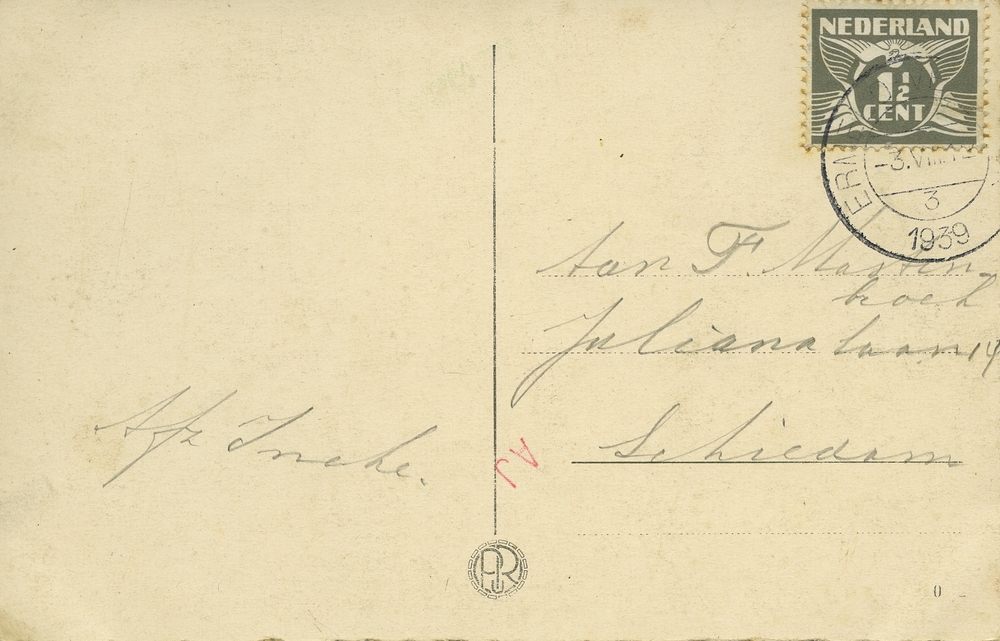 NEDERLAND
1½
CENT
ERM
-3.VIII.12
3
1939
Aan F. Masten-
broek
Julianalaan 14
Schiedam
Afz Ineke.
AJ
0